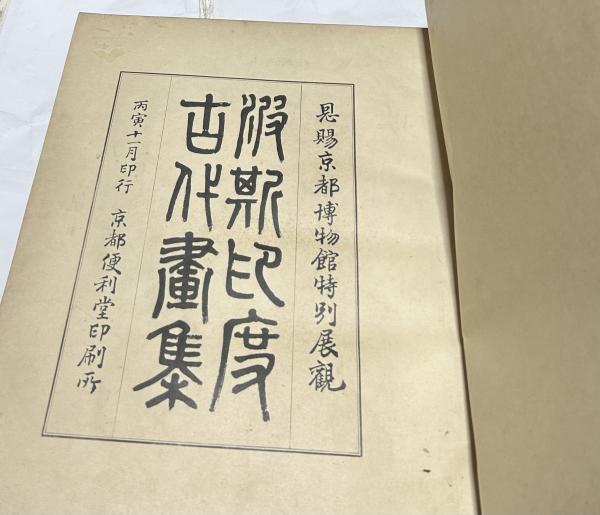 恩賜京都博物館特別展觀
波斯印度
古代畫集
丙寅十一月印行 京都便利堂印刷所